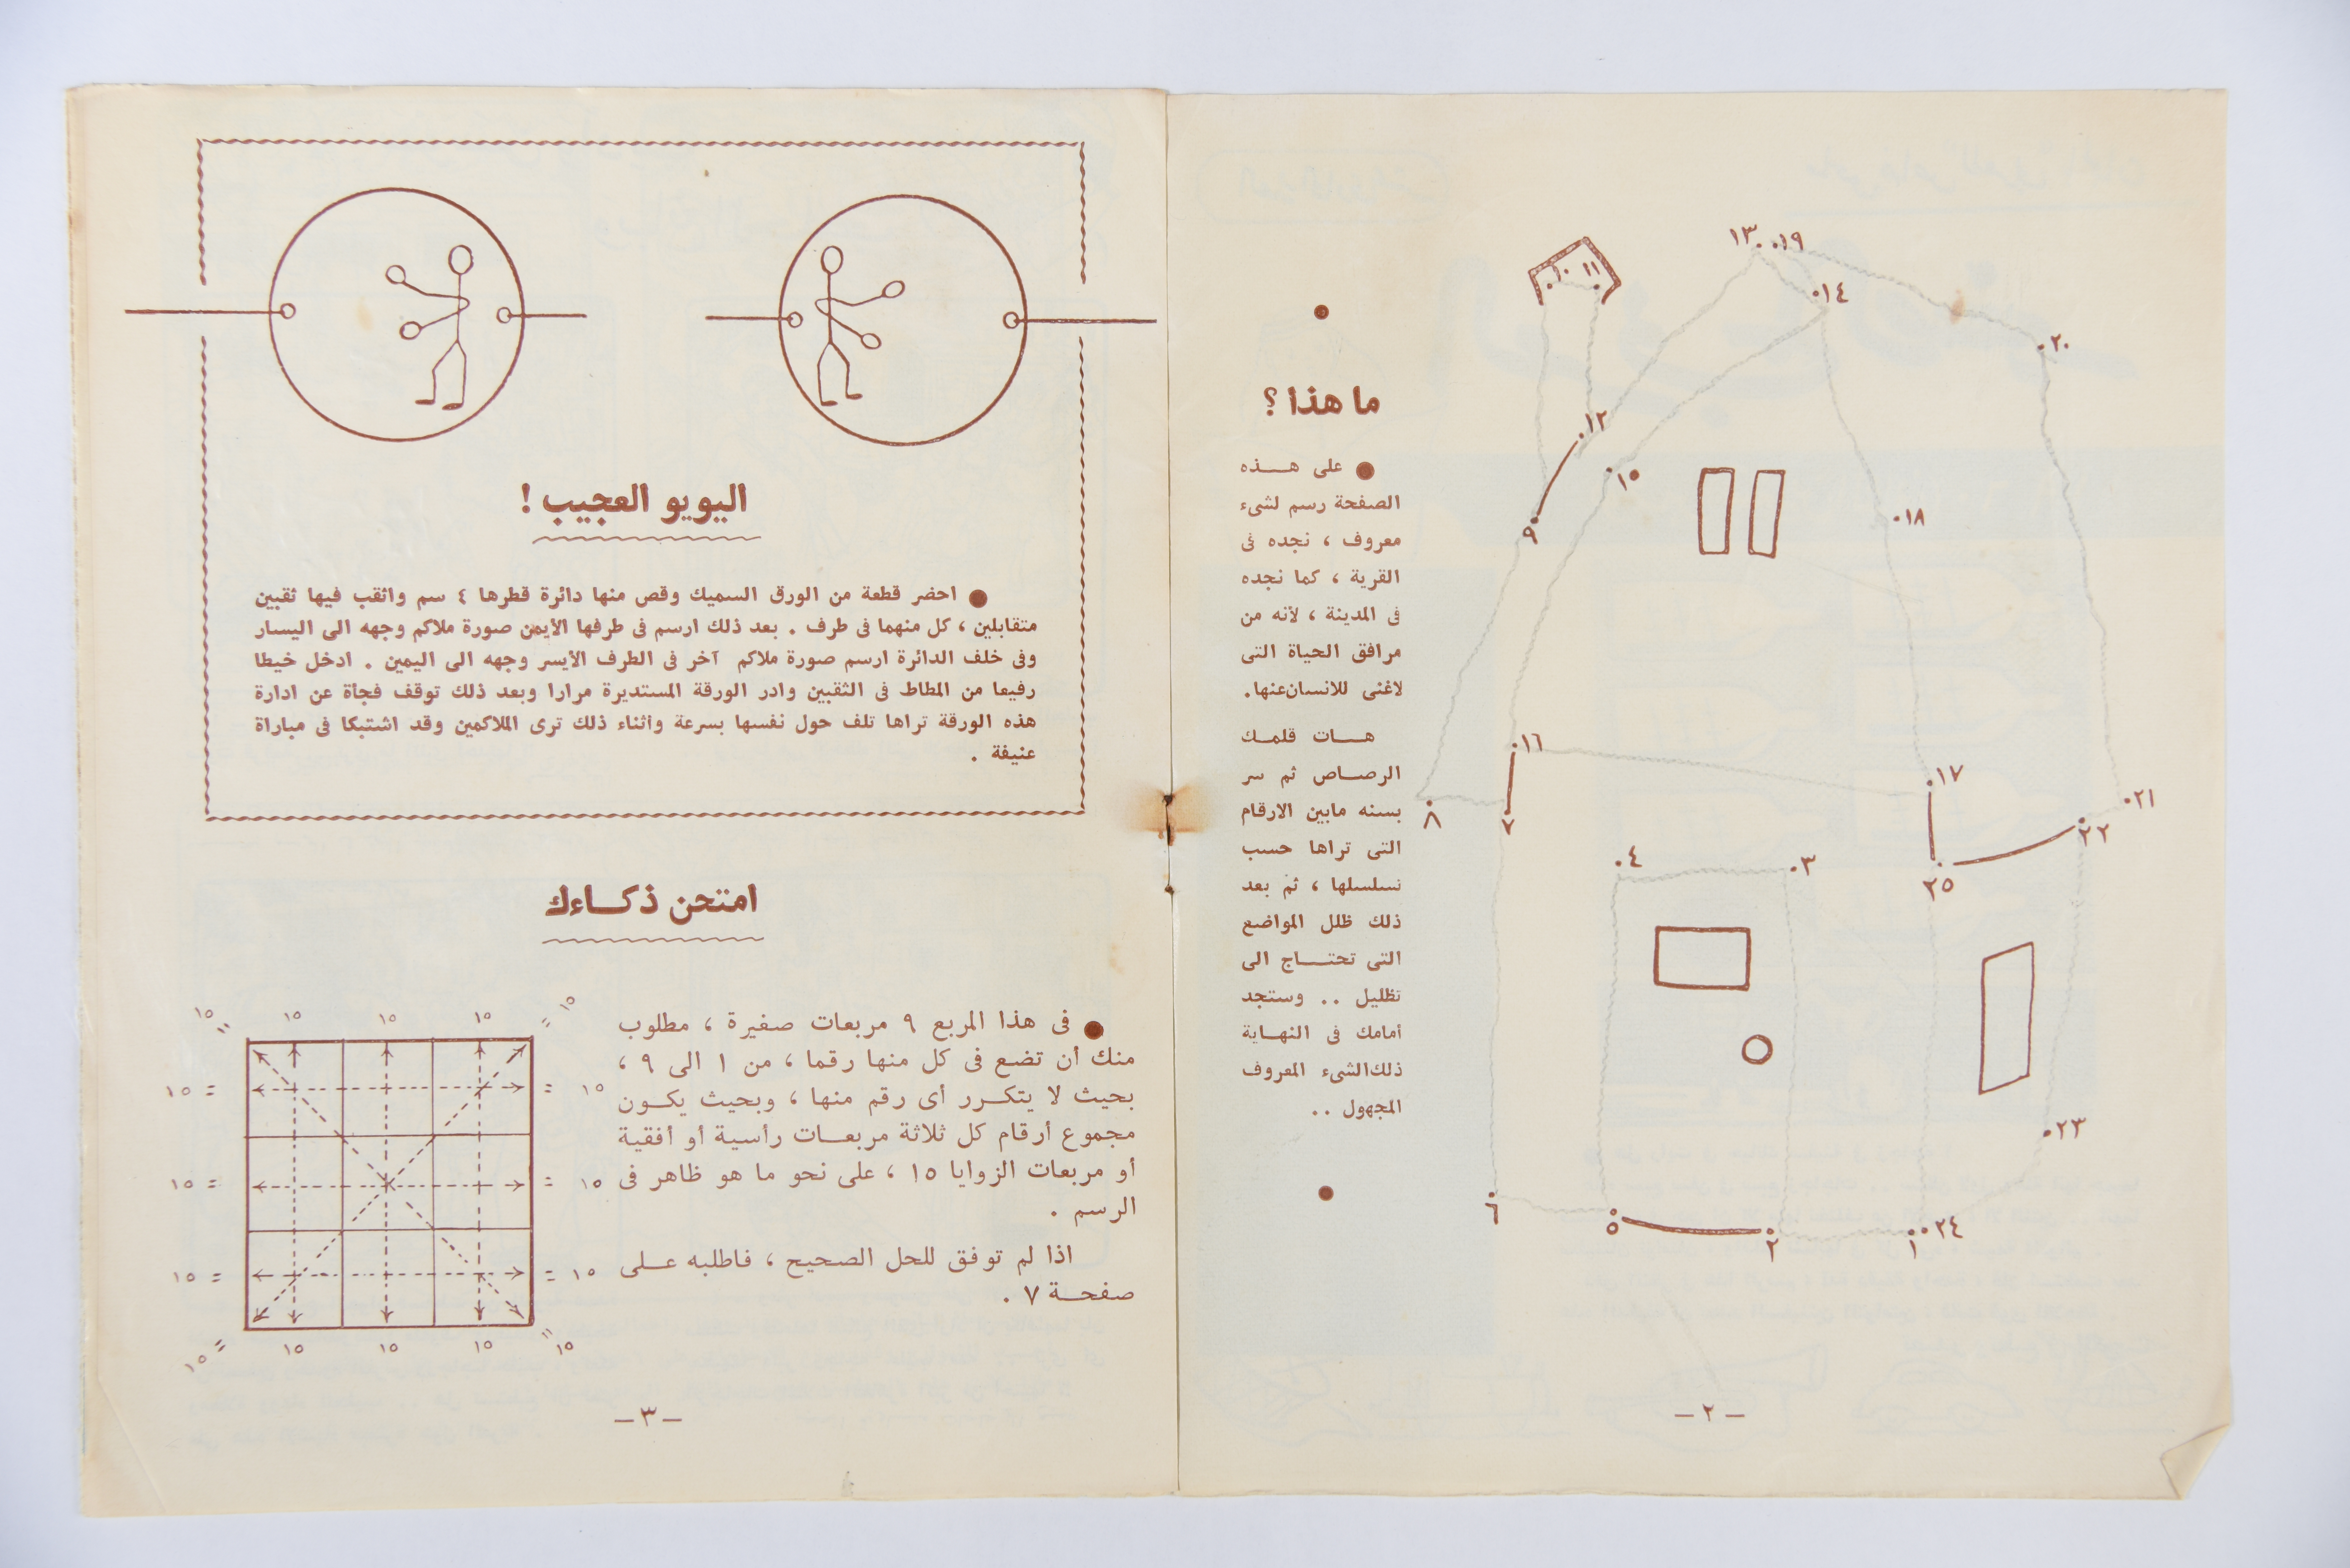 ما هذا ؟
على هـــذه
الصفحة رسم لشىء
معروف ، نجده فى
القرية ، كما نجده
فى المدينة ، لأنه من
مرافق الحياة التى
لاغنى للانسان عنها.
هـــات قلمـك
الرصــاص ثم سر
بسنه مابين الارقام
التى تراها حسب
تسلسلها ، ثم بعد
ذلك ظلل المواضع
التى تحتـــاج الى
تظليل .. وستجد
أمامك فى النهـاية
ذلك الشىء المعروف
المجهول ..
١٣ ١٩
١٠ ١١
١٤
٢٠
١٢
١٥
٩
١٨
١٦
١٧
٢١
٨
٧
٢٢
٤
٣
٢٥
٢٣
٦
٥
٢
١
٢٤
– ٢ –
اليويو العجيب !
احضر قطعة من الورق السميك وقص منها دائرة قطرها ٤ سم واثقب فيها ثقبين
متقابلين ، كل منهما فى طرف . بعد ذلك ارسم فى طرفها الأيمن صورة ملاكم وجهه الى اليسار
وفى خلف الدائرة ارسم صورة ملاكم آخر فى الطرف الأيسر وجهه الى اليمين . ادخل خيطا
رفيعا من المطاط فى الثقبين وادر الورقة المستديرة مرارا وبعد ذلك توقف فجأة عن ادارة
هذه الورقة تراها تلف حول نفسها بسرعة واثناء ذلك ترى الملاكمين وقد اشتبكا فى مباراة
عنيفة .
امتحن ذكــاءك
فى هذا المربع ٩ مربعات صغيرة ، مطلوب
منك أن تضع فى كل منها رقما ، من ١ الى ٩ ،
بحيث لا يتكــرر أى رقم منها ، وبحيث يكــون
مجموع أرقام كل ثلاثة مربعــات رأسية أو أفقية
أو مربعات الزوايا ١٥ ، على نحو ما هو ظاهر فى
الرسم .
اذا لم توفق للحل الصحيح ، فاطلبه عــلى
صفحــة ٧ .
١٥ = ١٥ ١٥ ١٥ = ١٥
١٥ = = ١٥
١٥ = = ١٥
١٥ = = ١٥
١٥ = ١٥ ١٥ ١٥ = ١٥
– ٣ –